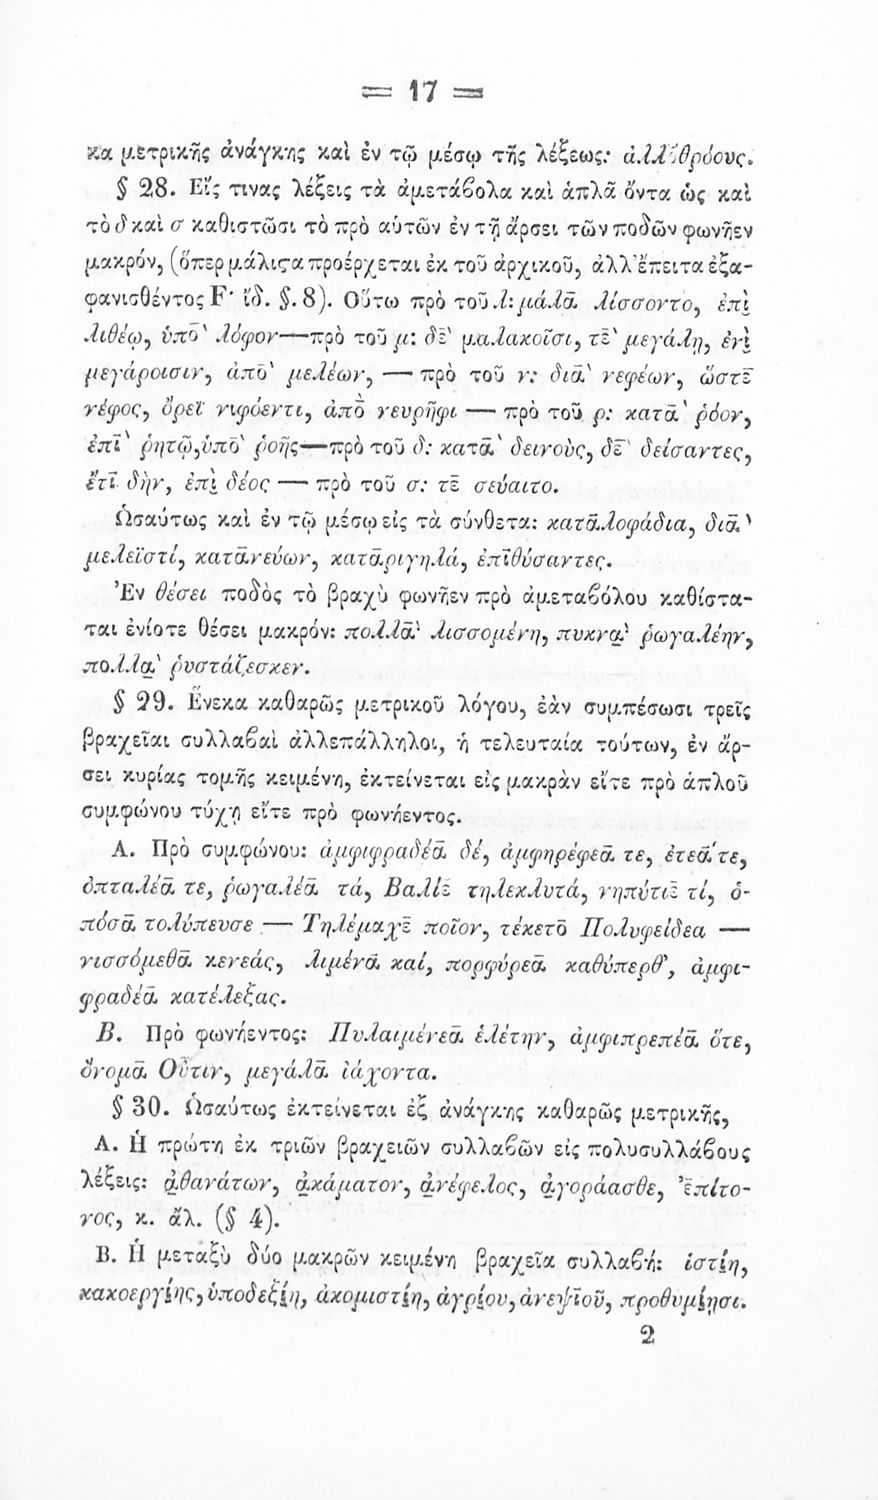 = 17 =
κα μετρικῆς ἀνάγκης καὶ ἐν τῷ μέσῳ τῆς λέξεως: ἀλλΐθρόους.
§ 28. Εἴς τινας λέξεις τὰ ἀμετάβολα καὶ ἁπλᾶ ὄντα ὡς καὶ
τὸ δ καὶ σ καθιστῶσι τὸ πρὸ αὑτῶν ἐν τῇ ἄρσει τῶν ποδῶν φωνῆεν
μακρόν, (ὅπερ μάλιςα προέρχεται ἐκ τοῦ ἀρχικοῦ, ἀλλ' ἔπειτα ἐξα-
φανισθέντος F· ἴδ. §. 8). Οὕτω πρὸ τοῦ λ: μάλᾱ λίσσοντο, ἐπὶ̱
λιθέῳ, ὑπο̄̀ λόφον—πρὸ τοῦ μ: δε̄̀ μαλακοῖσι, τε̄̀ μεγάλῃ, ἐνὶ̱
μεγάροισιν, ἀπο̄̀ μελέων, — πρὸ τοῦ ν: διᾱ̀ νεφέων, ὥστε̄
νέφος, ὄρεϊ νιφόεντι, ἀπο̄̀ νευρῆφι — πρὸ τοῦ ρ: κατᾱ̀ ῥόον,
ἐπῑ̀ ῥητῷ, ὑπο̄̀ ῥοῆς—πρὸ τοῦ δ: κατᾱ̀ δεινοὺς, δε̄̀ δείσαντες,
ἔτῑ δὴν, ἐπὶ̱ δέος — πρὸ τοῦ σ: τε̄ σεύαιτο.
Ὡσαύτως καὶ ἐν τῷ μέσῳ εἰς τὰ σύνθετα: κατᾱλοφάδια, διᾱ̀
μελεϊστί, κατᾱνεύων, κατᾱριγηλά, ἐπῑθύσαντες.
Ἐν θέσει ποδὸς τὸ βραχὺ φωνῆεν πρὸ ἀμεταβόλου καθίστα-
ται ἐνίοτε θέσει μακρόν: πολλᾱ̀ λισσομένη, πυκνὰ̱ ῥωγαλέην,
πολλὰ̱ ῥυστάζεσκεν.
§ 29. Ἕνεκα καθαρῶς μετρικοῦ λόγου, ἐὰν συμπέσωσι τρεῖς
βραχεῖαι συλλαβαὶ ἀλλεπάλληλοι, ἡ τελευταία τούτων, ἐν ἄρ-
σει κυρίας τομῆς κειμένη, ἐκτείνεται εἰς μακρὰν εἴτε πρὸ ἁπλοῦ
συμφώνου τύχῃ εἴτε πρὸ φωνήεντος.
Α. Πρὸ συμφώνου: ἀμφιφραδέᾱ δέ, ἀμφηρέφεᾱ τε, ἐτεᾱ́ τε,
ὀπταλέᾱ τε, ῥωγαλέᾱ τά, Βαλίε̄ τηλεκλυτά, νηπύτιε̄ τί, ὁ-
πόσᾱ τολύπευσε — Τηλέμαχε̄ ποῖον, τέκετο̄ Πολυφείδεα —
νισσόμεθᾱ κενεάς, λιμένᾱ καί, πορφύρεᾱ καθύπερθ', ἀμφι-
φραδέᾱ κατέλεξας.
Β. Πρὸ φωνήεντος: Πυλαιμένεᾱ ἑλέτην, ἀμφιπρεπέᾱ ὅτε,
ὄνομᾱ Οὖτιν, μεγάλᾱ ἰάχοντα.
§ 30. Ὡσαύτως ἐκτείνεται ἐξ ἀνάγκης καθαρῶς μετρικῆς,
Α. Ἡ πρώτη ἐκ τριῶν βραχειῶν συλλαβῶν εἰς πολυσυλλάβους
λέξεις: ἀ̱θανάτων, ἀ̱κάματον, ἀ̱νέφελος, ἀ̱γοράασθε, ἐ̄πίτο-
νος, κ. ἄλ. (§ 4).
Β. Ἡ μεταξὺ δύο μακρῶν κειμένη βραχεῖα συλλαβή: ἱστί̱η,
κακοεργί̱ης, ὑποδεξί̱η, ἀκομιστί̱η, ἀγρί̱ου, ἀνεψῑοῦ, προθυμί̱ῃσι.
2